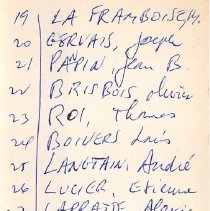 19 LA FRAMBOISE, M.
20 GERVAIS, Joseph
21 PAPIN, Jean B.
22 BRISBOIS Olivier
23 ROI, Thomas
24 BOIVERS Louis
25 LANGTAIN, André
26 LUCIER, Etienne
LAPRATTE